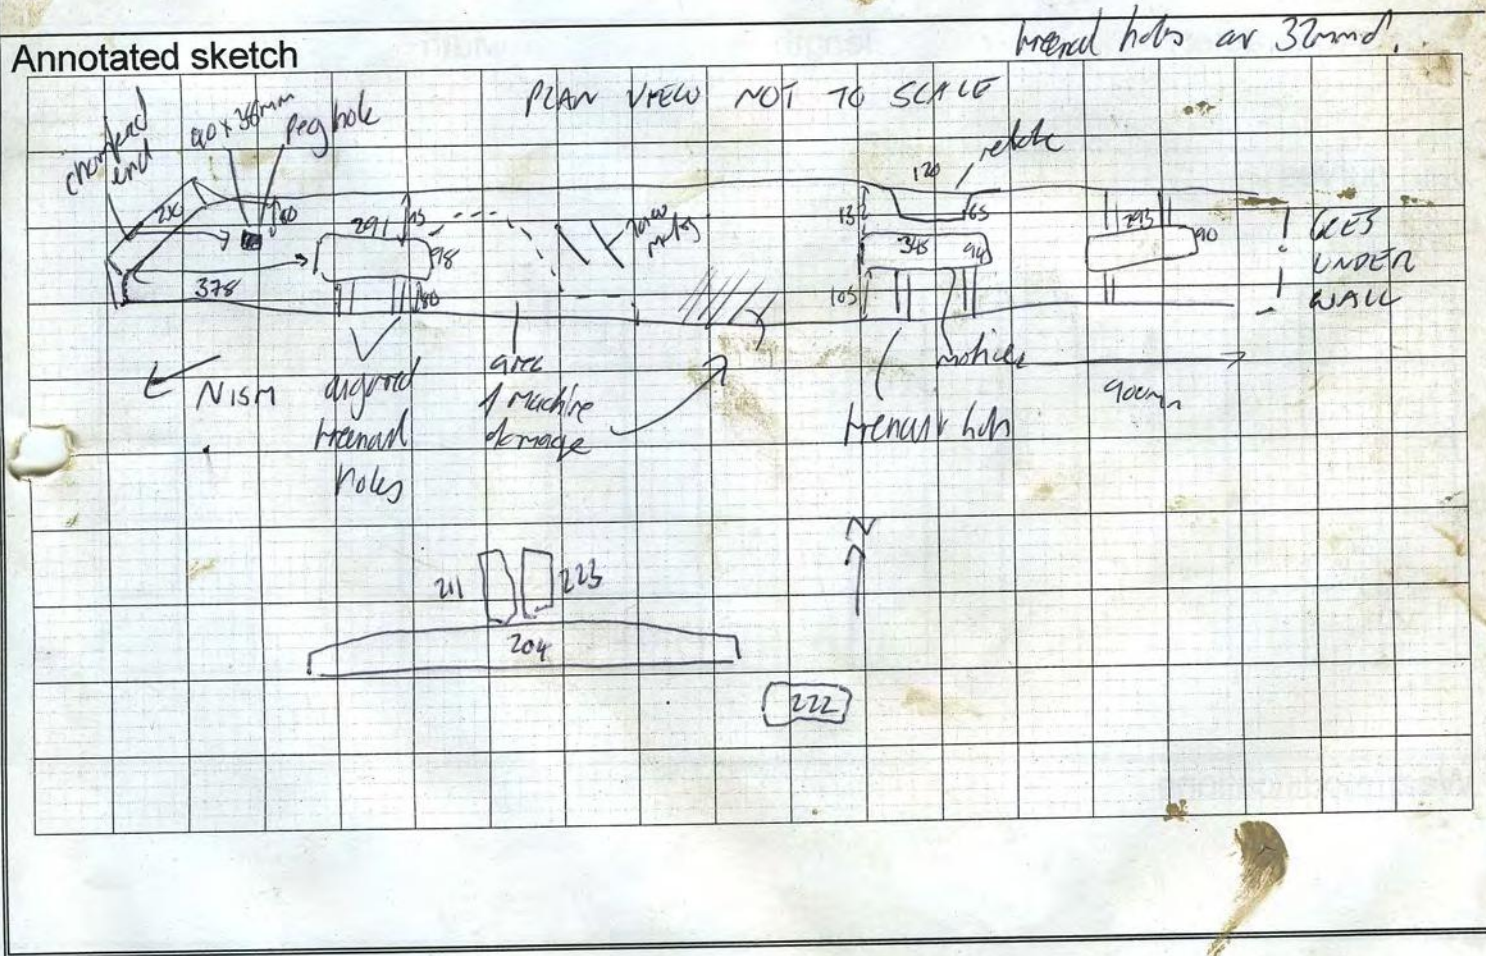 Annotated sketch
treenail holes are 32mm d.
PLAN VIEW NOT TO SCALE
chamfered
end
40 x 38mm
peg hole
rebate
120
60
291
98
80
378
132
65
345
94
105
293
90
GOES
UNDER
WALL
N15M
augured
treenail
holes
area
of machine
damage
treenail holes
mortice
900mm
N
211
223
204
222